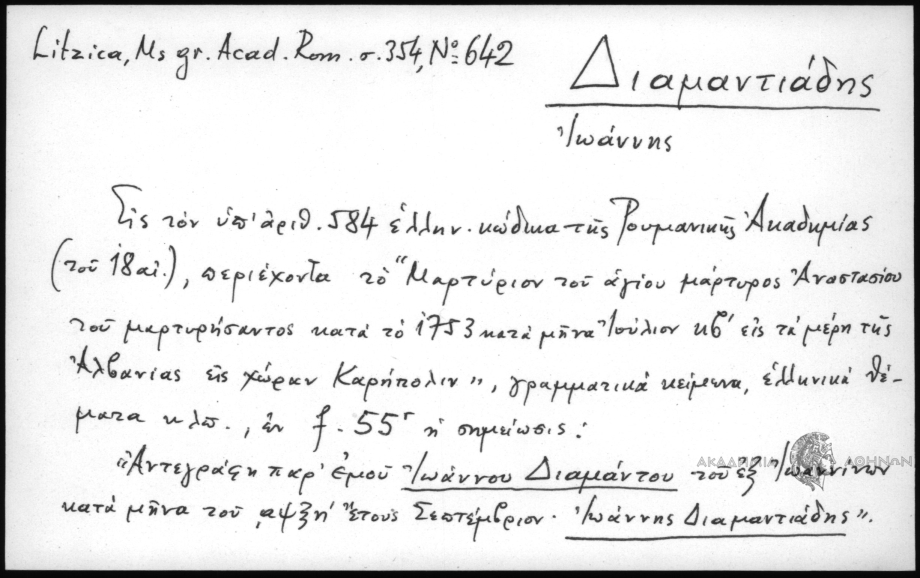 Litzica, Ms gr. Acad. Rom. σ. 354, Nο 642
Διαμαντιάδης
Ἰωάννης
Εἰς τὸν ὑπ' ἀριθ. 584 ἑλλην. κώδικα τῆς Ρουμανικῆς Ἀκαδημίας
(τοῦ 18 αἰ.), περιέχοντα τὸ "Μαρτύριον τοῦ ἁγίου μάρτυρος Ἀναστασίου
τοῦ μαρτυρήσαντος κατὰ τὸ 1753 κατὰ μῆνα Ἰούλιον κβ' εἰς τὰ μέρη τῆς
Ἀλβανίας εἰς χώραν Καρήπολιν", γραμματικὰ κείμενα, ἑλληνικὰ θέ-
ματα κλπ., ἐν f. 55r ἡ σημείωσις:
"Ἀντεγράφη παρ' ἐμοῦ Ἰωάννου Διαμάντου τοῦ ἐξ Ἰωαννίνων
κατὰ μῆνα τοῦ ͵αψξη' ἔτους Σεπτέμβριον. Ἰωάννης Διαμαντιάδης".
ΑΚΑΔΗΜΙΑ ΑΘΗΝΩΝ